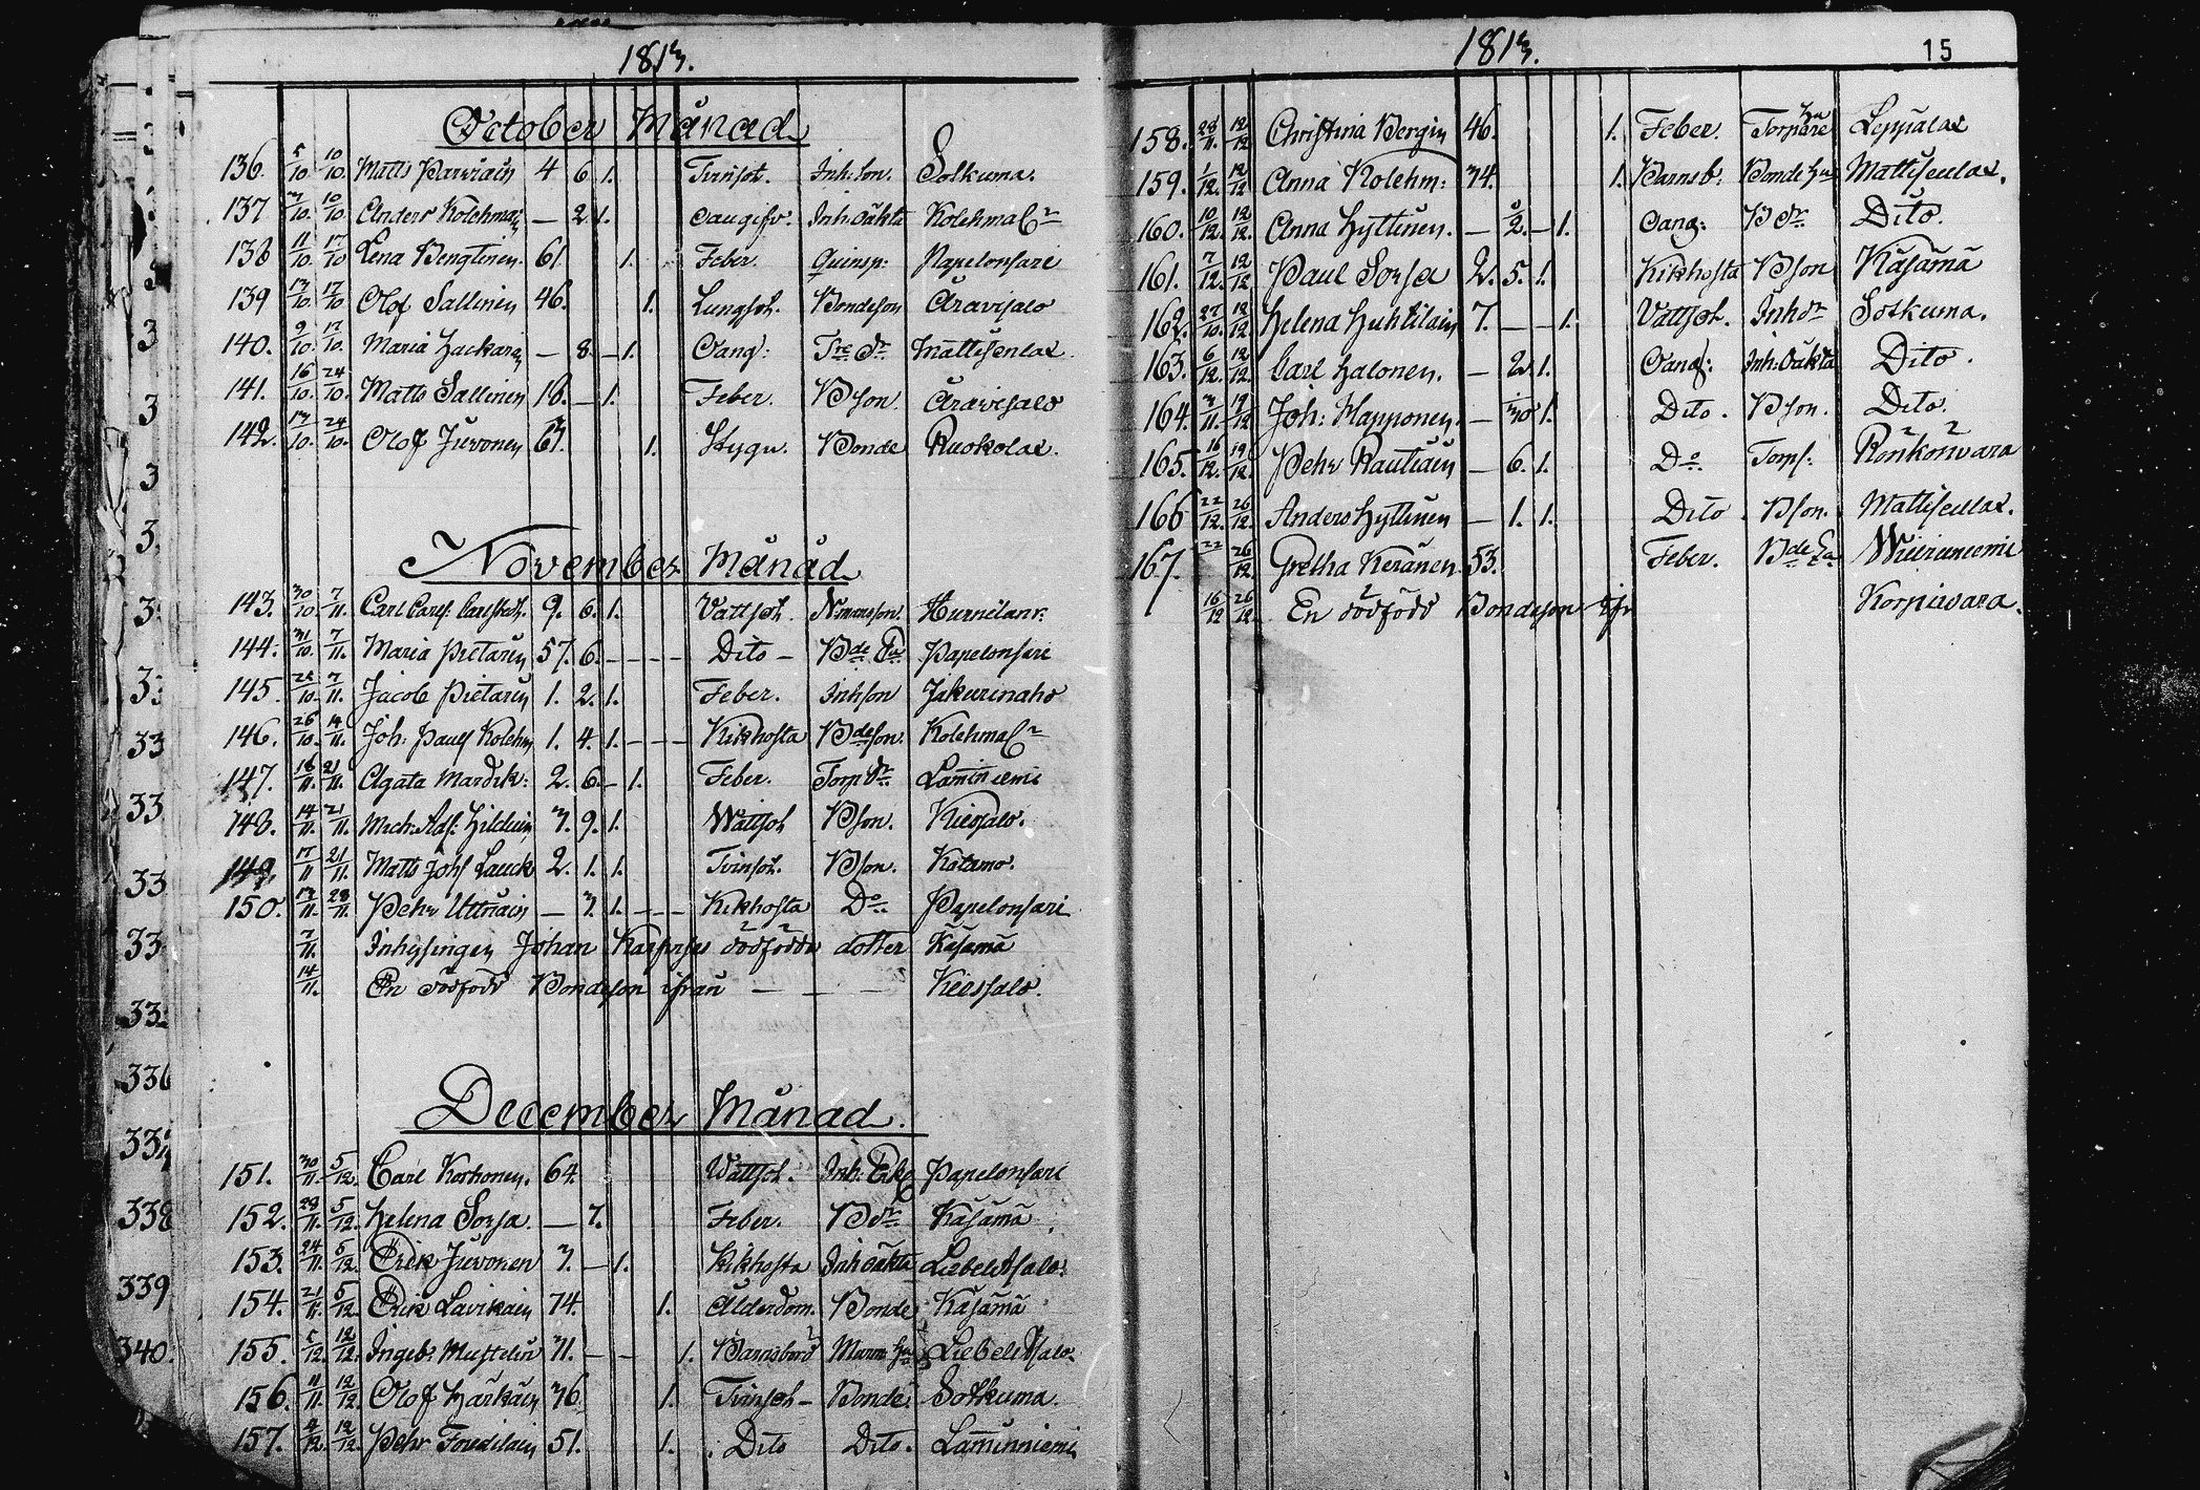 1813.
October Månad
136. 5/10. 10/10. Matts Parviain 4 6 1. Tvinsot. Inh: son. Sotkuma.
137 7/10. 10/10 Anders Kolehmain — 2 1. Oangifv. Inh: Oäkta Kolehma
138 11/10. 17/10 Lena Bengtinen. 61. 1. Feber. Quinsp: Papelonsari
139 13/10 17/10 Olof Sallinen 46. 1. Lungsot. Bondeson Aravisalo
140. 9/10. 17/10. Maria Hackarain — 8. — 1. Oang: Dr Mattisenlax.
141. 16/10. 24/10. Matts Sallinen 18. — 1. Feber. Bson. Aravisalo
142. 17/10. 24/10. Olof Juvonen 67. 1. Stygn. Bonde Ruokolax.
November Månad
143. 30/10. 7/11. Carl Carls. 9. 6. 1. Vattsot.
144. 31/10. 7/11. Maria Pietarin 57. 6. - - - - Dito - Bde Papelonsari
145. 7/11. Jacob Pietarin 1. 2. 1. Feber. Inhson Jakurinaho
146. 26/10. 14/11. Joh: Pauls Kolehm 1. 4. 1. - - - Kikhosta Bdeson. Kolehma
147. 16/11. 21/11. Agata Mardik: 2. 6. - 1. Feber. Torp. Dr. Laminiemi
148. 14/11. 21/11. Mich: Adf: 7. 9. 1. Wattsot Bson. Kiessalo.
149. 17/11 21/11. Matts Johs Lauck 2. 1. 1. Tvinsot. Bson. Katamo.
150. 13/11. 28/11. Pehr Uttriain — 7. 1. - - - Kikhosta Do. Papelonsari
7/11. Inhysingen Johan dödfödda dotter Käsämä
14/11. En dödfödd Bondeson ifrån — — — Kiessalo.
December Månad.
151. 30/11. 5/12. Carl Korhonen. 64. Wattsot. Inh: Papelonsari
152. 28/11. 5/12. Helena Sorsa. — 7. Feber. B Dr Käsämä
153. 24/11. 5/12. Erik Juvonen 7. — 1. Kikhosta Inh Oäkta Liebelitsalo.
154. 21/11. 5/12. Erik Lavikain 74. 1. Ålderdom. Bonde Käsämä
155. 5/12. 12/12. Ingeb: Mustelin 71. — — 1. Barnsbörd Liebelitsalo.
156. 11/11. 12/12. Olof Härkäin 76. 1. Tvinsot - Bonde Sotkuma.
157. 12/12. Pehr 51. 1. Dito Dito. Laminniemi
1813. 15
158. 28/11. 12/12 Christina Bergin 46. 1. Feber. Torpare hu Leppälax
159. 1/12. 12/12 Anna Kolehm: 74. 1. Barnsb: Bonde hu Mattisenlax.
160. 10/12. 12/12. Anna Hyttinen. — 2. — 1. Oang: B Dr Dito.
161. 7/12. 12/12 Paul Sorsa 2. 5. 1. Kikhosta Bson Käsämä
162. 27/10. 12/12. Helena Huhtilain 7. — — 1. Vattsot. Inh dr Sotkuma.
163. 6/12. 12/12. Carl Halonen. — 2. 1. Oang: Inh: Oäkta Dito.
164. 7/11. 19/12 Joh: Happonen. — 30 1. Dito. Bson. Dito.
165. 16/12. 19/12. Pehr Rautiain — 6. 1. Do. Torps: Rönkönvara
166 22/12. 26/12. Anders Hyttinen — 1. 1. Dito. Bson. Mattisenlax.
167. 22 26/12. Gretha Keränen 53. Feber. Bde Wiiriniemi
16/12 26/12. En dödfödd Bondeson ifr Korpivaara.
3
3
3
3
3
3.
3
33
33
33
33
33
33
336
338
339
340.